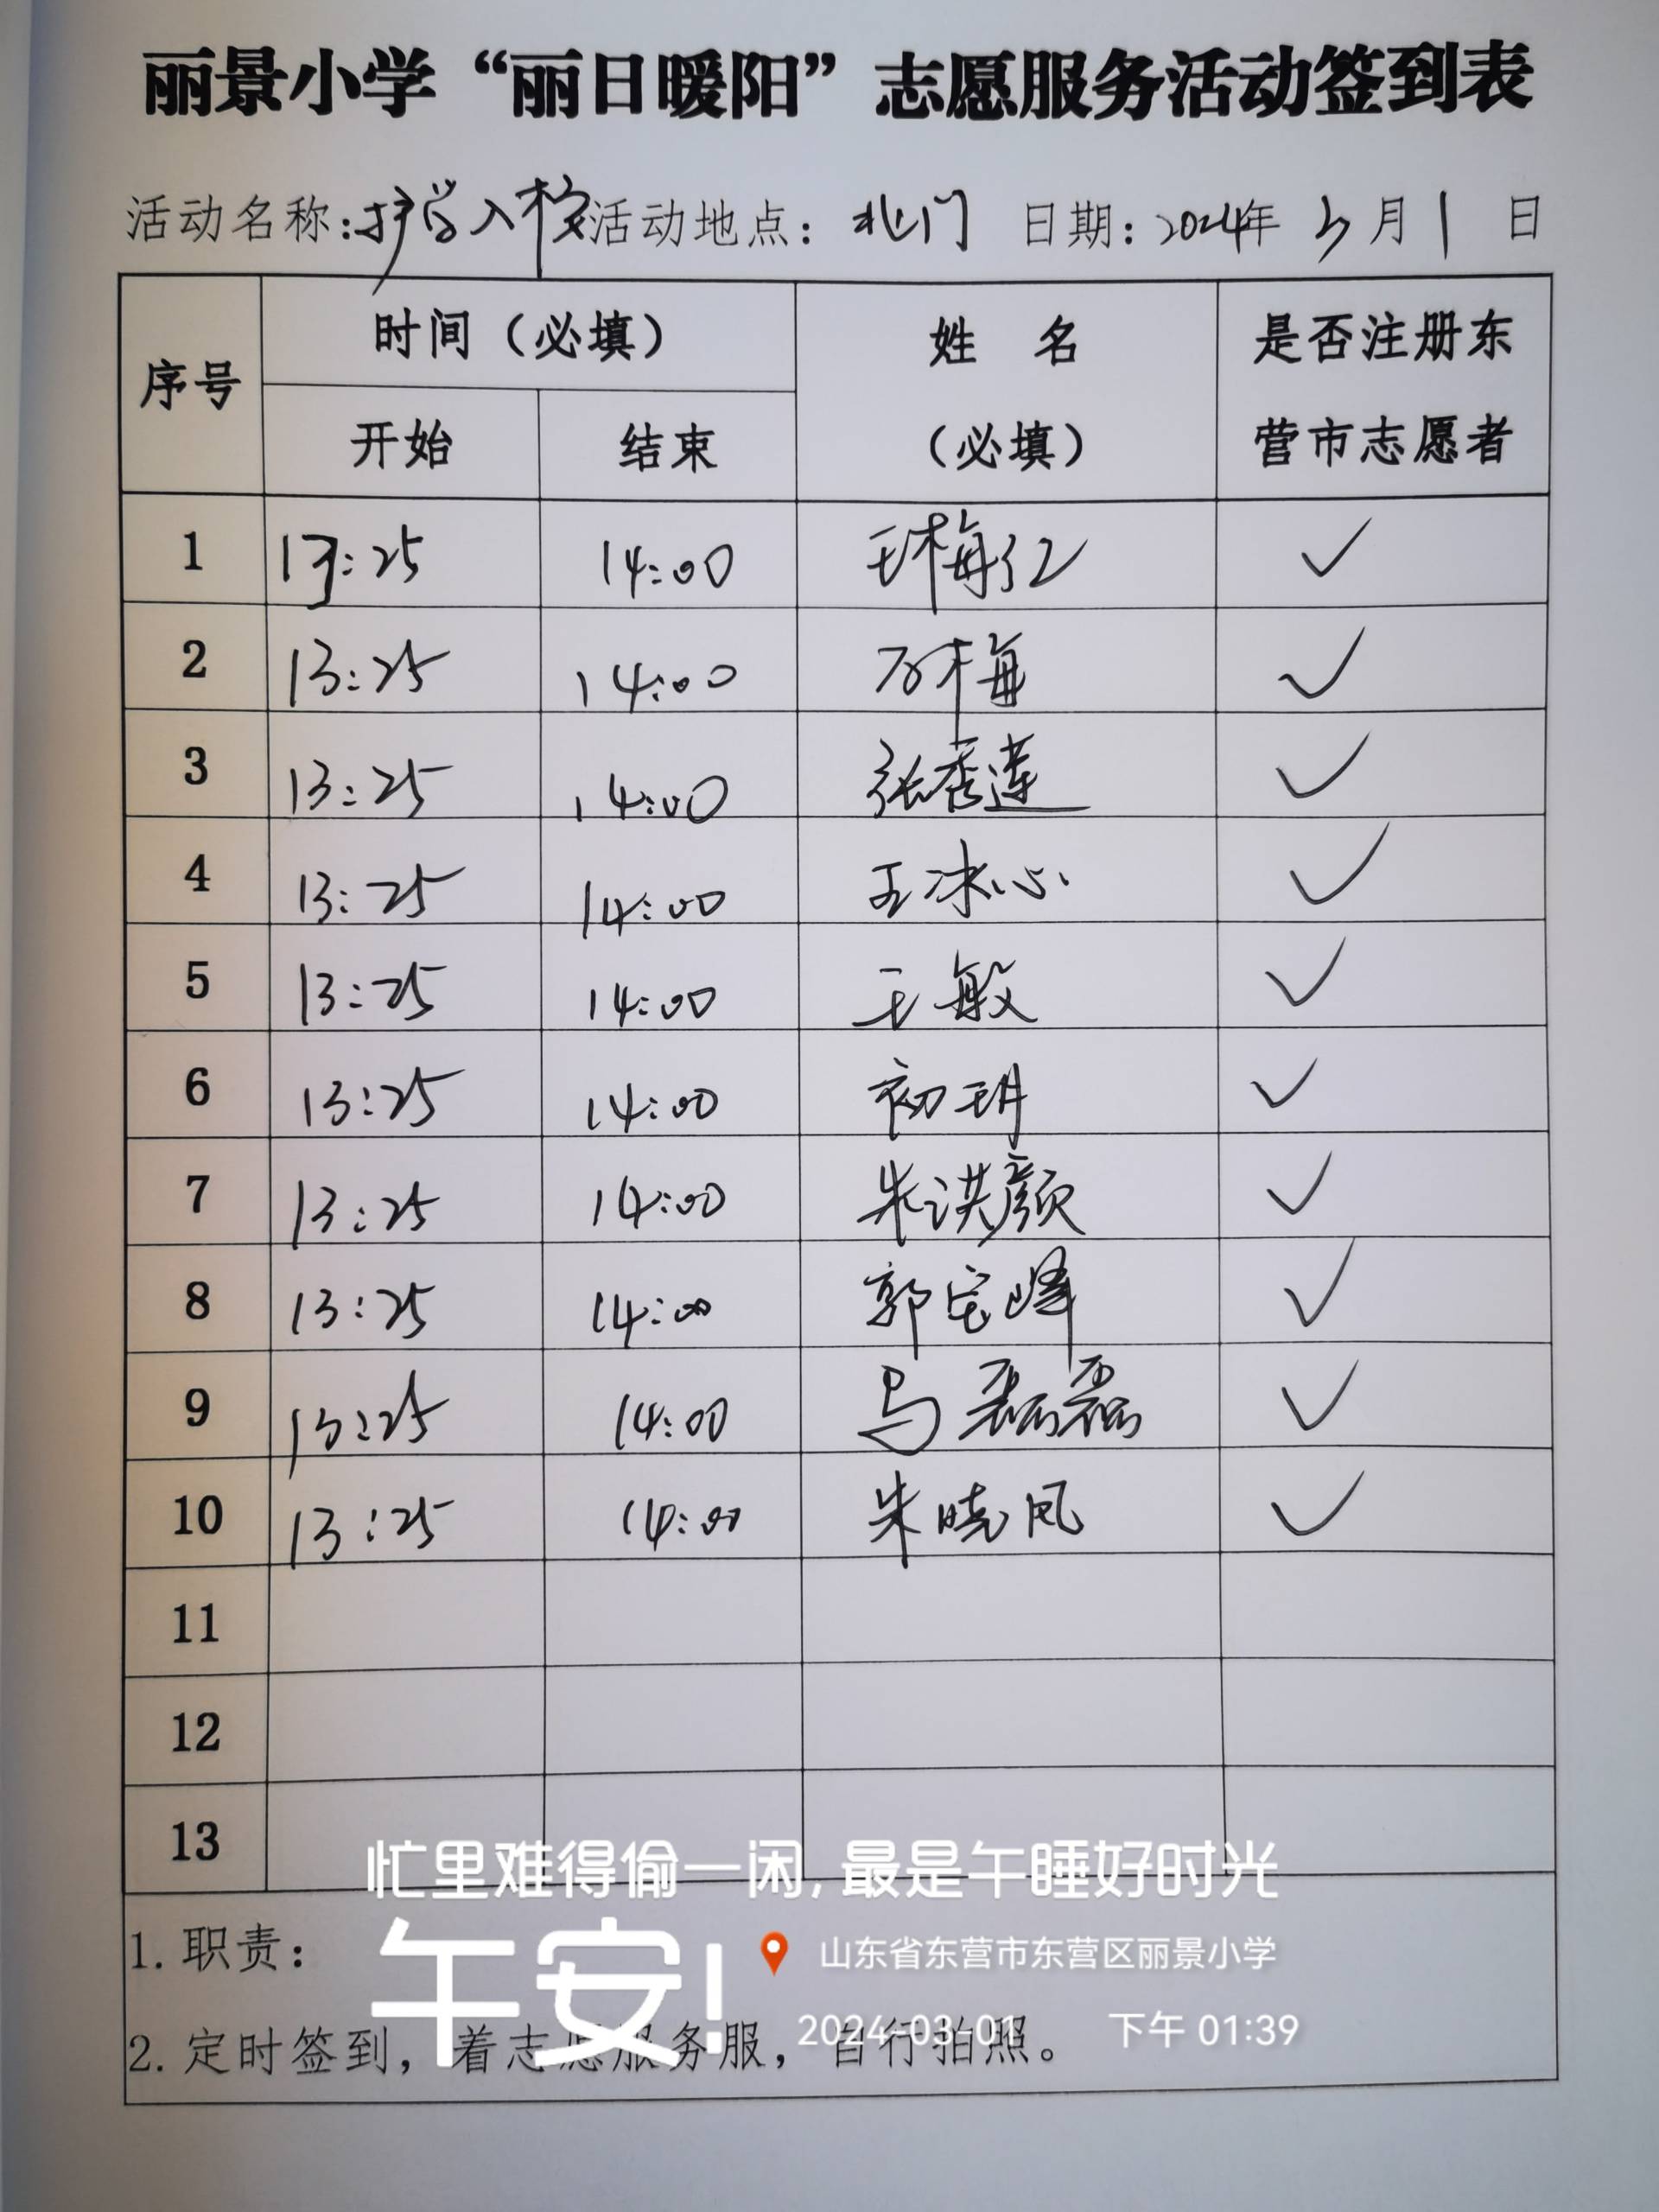 丽景小学“丽日暖阳”志愿服务活动签到表
活动名称:护学入校 活动地点: 北门 日期: 2024年 3月 1 日
序号 时间（必填） 姓 名 是否注册东
开始 结束 （必填） 营市志愿者
1 13:25 14:00 王梅红 ✓
2 13:25 14:00 石梅 ✓
3 13:25 14:00 张秀莲 ✓
4 13:25 14:00 王冰心 ✓
5 13:25 14:00 王敏 ✓
6 13:25 14:00 初玥 ✓
7 13:25 14:00 朱洪颜 ✓
8 13:25 14:00 郭宝峰 ✓
9 13:25 14:00 马磊磊 ✓
10 13:25 14:00 朱晓凤 ✓
11
12
13
忙里难得偷一闲,最是午睡好时光
1. 职责：
午安!
山东省东营市东营区丽景小学
2024-03-01 下午 01:39
2. 定时签到，着志愿服务服，自行拍照。